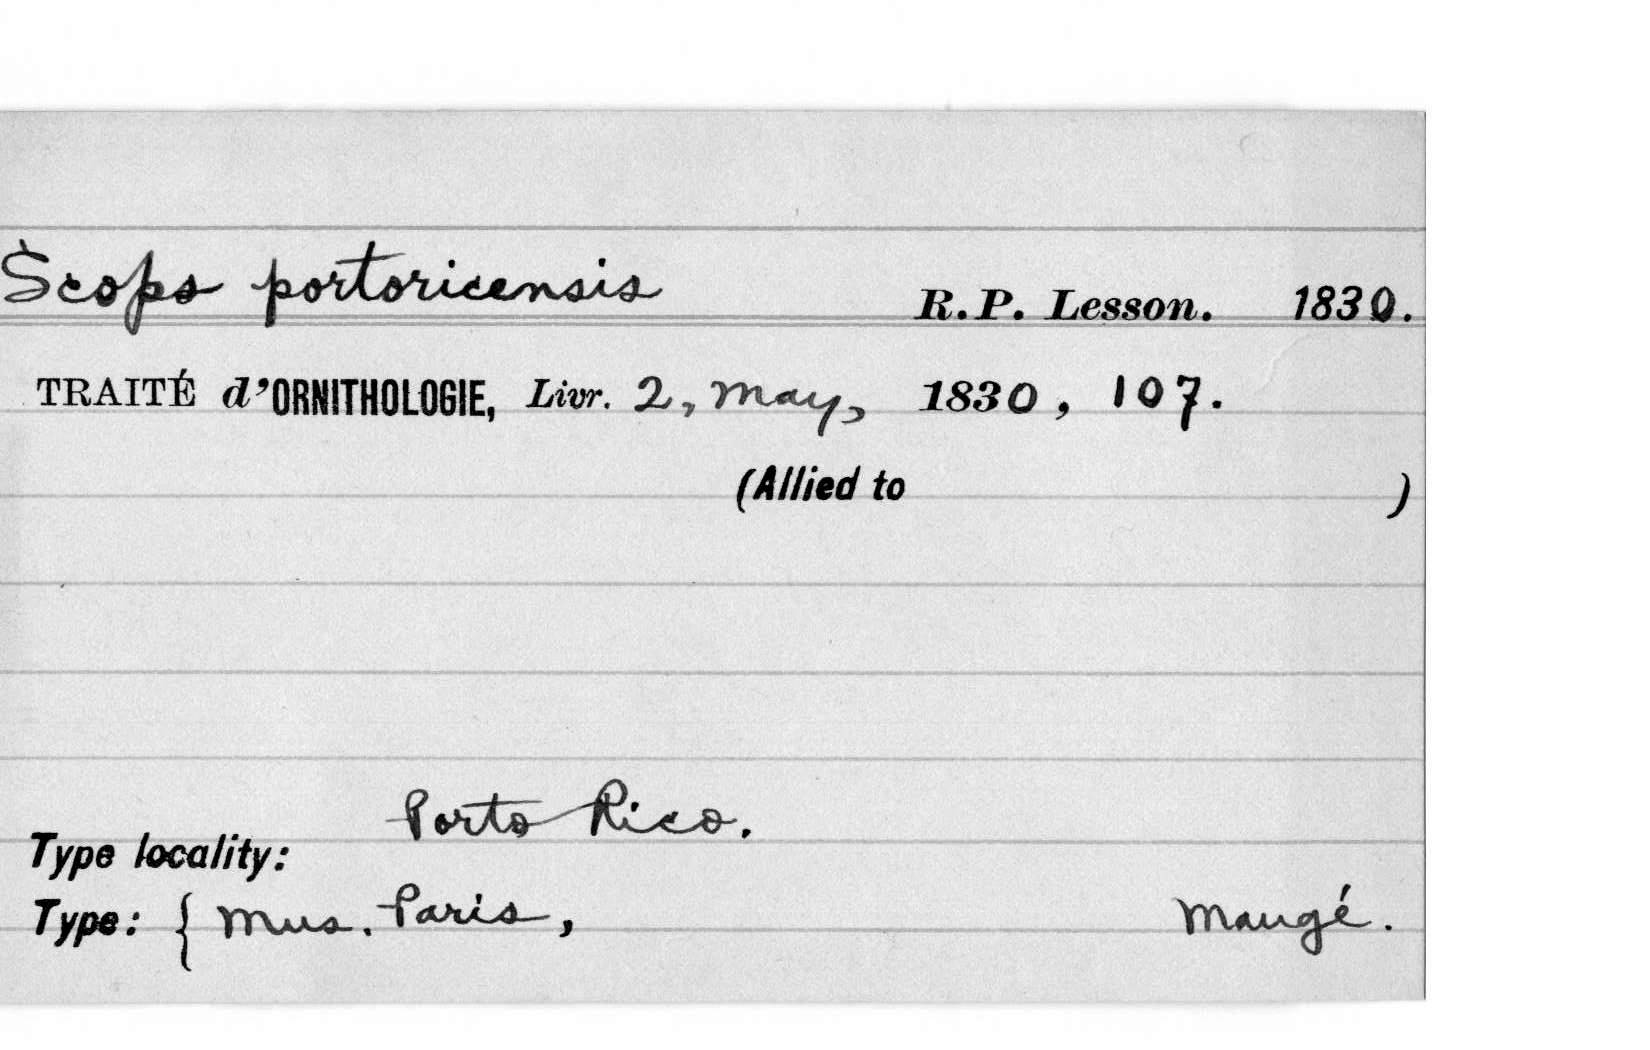 Scops portoricensis R.P. Lesson. 1830.
TRAITÉ d'ORNITHOLOGIE, Livr. 2, May, 1830, 107.
(Allied to )
Porto Rico.
Type locality:
Type: { Mus. Paris, Maugé.